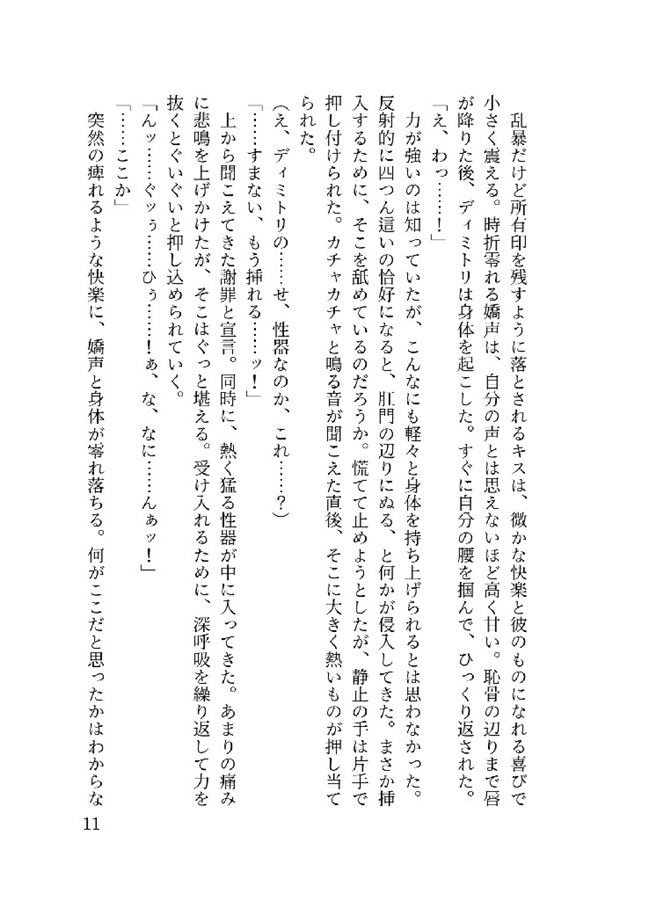 乱暴だけど所有印を残すように落とされるキスは、微かな快楽と彼のものになれる喜びで
小さく震える。時折零れる嬌声は、自分の声とは思えないほど高く甘い。恥骨の辺りまで唇
が降りた後、ディミトリは身体を起こした。すぐに自分の腰を掴んで、ひっくり返された。
「え、わっ……！」
力が強いのは知っていたが、こんなにも軽々と身体を持ち上げられるとは思わなかった。
反射的に四つん這いの恰好になると、肛門の辺りにぬる、と何かが侵入してきた。まさか挿
入するために、そこを舐めているのだろうか。慌てて止めようとしたが、静止の手は片手で
押し付けられた。カチャカチャと鳴る音が聞こえた直後、そこに大きく熱いものが押し当て
られた。
（え、ディミトリの……せ、性器なのか、これ……？）
「……すまない、もう挿れる……ッ！」
上から聞こえてきた謝罪と宣言。同時に、熱く猛る性器が中に入ってきた。あまりの痛み
に悲鳴を上げかけたが、そこはぐっと堪える。受け入れるために、深呼吸を繰り返して力を
抜くとぐいぐいと押し込められていく。
「んッ……ぐッぅ……ひぅ……！ぁ、な、なに……んぁッ！」
「……ここか」
突然の痺れるような快楽に、嬌声と身体が零れ落ちる。何がここだと思ったかはわからな
11